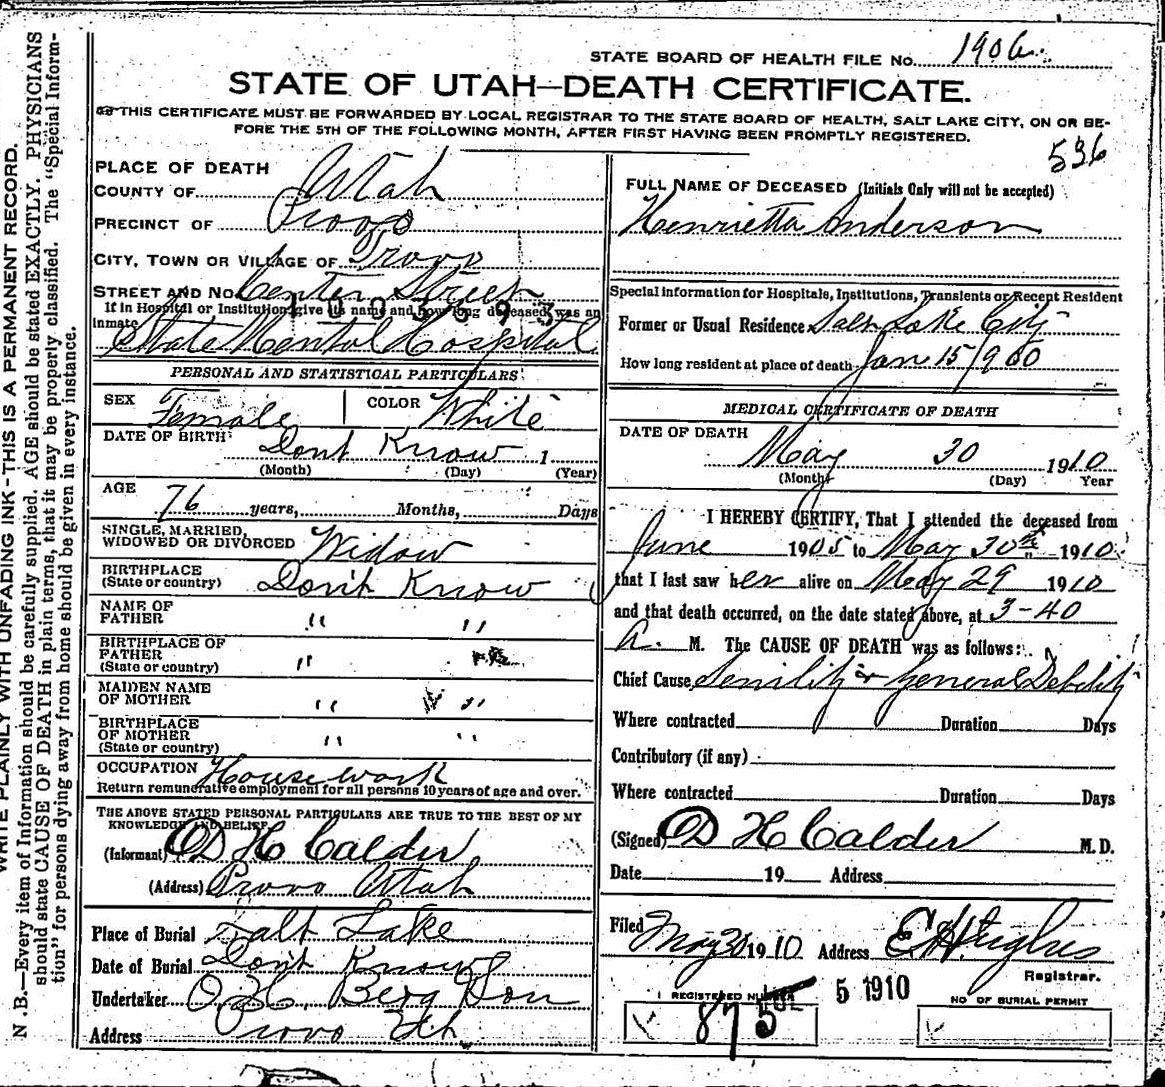 STATE BOARD OF HEALTH FILE No. 1906
STATE OF UTAH—DEATH CERTIFICATE.
THIS CERTIFICATE MUST BE FORWARDED BY LOCAL REGISTRAR TO THE STATE BOARD OF HEALTH, SALT LAKE CITY, ON OR BE-
FORE THE 5TH OF THE FOLLOWING MONTH, AFTER FIRST HAVING BEEN PROMPTLY REGISTERED.
536
PLACE OF DEATH
COUNTY OF Utah
PRECINCT OF Provo
CITY, TOWN OR VILLAGE OF Provo
STREET AND No. Center Street
If in Hospital or Institution, give its name and how long deceased was an
inmate
State Mental Hospital
PERSONAL AND STATISTICAL PARTICULARS
SEX Female COLOR White
DATE OF BIRTH Dont Know 1
(Month) (Day) (Year)
AGE 76 years, Months, Days
SINGLE, MARRIED,
WIDOWED OR DIVORCED Widow
BIRTHPLACE
(State or country) Don't Know
NAME OF
FATHER " "
BIRTHPLACE OF
FATHER
(State or country) "
MAIDEN NAME
OF MOTHER " "
BIRTHPLACE
OF MOTHER
(State or country) " "
OCCUPATION House work
Return remunerative employment for all persons 10 years of age and over.
THE ABOVE STATED PERSONAL PARTICULARS ARE TRUE TO THE BEST OF MY
KNOWLEDGE AND BELIEF
(Informant) D H Calder
(Address) Provo Utah
Place of Burial Salt Lake
Date of Burial Don't Know
Undertaker O. H. Berg Son
Address Provo Uth.
FULL NAME OF DECEASED (Initials Only will not be accepted)
Henrietta Anderson
Special information for Hospitals, Institutions, Transients or Recent Resident
Former or Usual Residence Salt Lake City
How long resident at place of death Jan 15/900
MEDICAL CERTIFICATE OF DEATH
DATE OF DEATH
May 30 1910
(Month) (Day) Year
I HEREBY CERTIFY, That I attended the deceased from
June 1905 to May 30th 1910
that I last saw her alive on May 29 1910
and that death occurred, on the date stated above, at 3-40
a. M. The CAUSE OF DEATH was as follows:
Chief Cause Senility & General Debility
Where contracted Duration Days
Contributory (if any)
Where contracted Duration Days
(Signed) D H Calder M.D.
Date 19 Address
Filed May 31 1910 Address E H Hughes
Registrar.
REGISTERED NUMBER
875
5 1910
NO OF BURIAL PERMIT
WRITE PLAINLY WITH UNFADING INK-THIS IS A PERMANENT RECORD.
N.B.—Every item of information should be carefully supplied. AGE should be stated EXACTLY. PHYSICIANS
should state CAUSE OF DEATH in plain terms, that it may be properly classified. The "Special Inform-
tion" for persons dying away from home should be given in every instance.